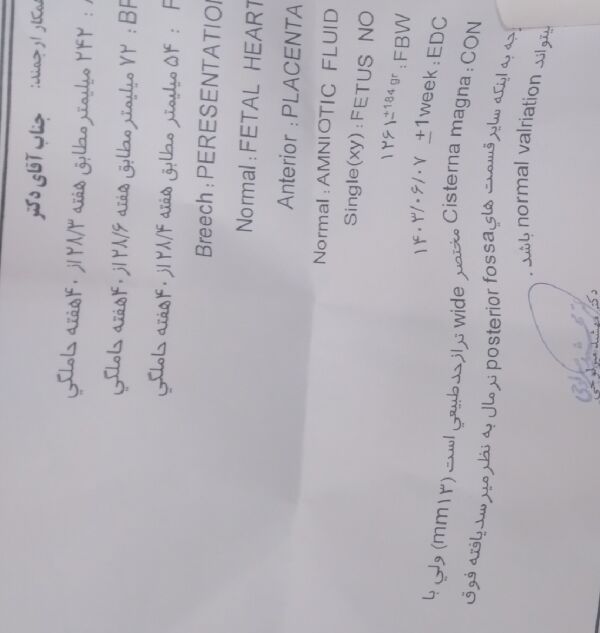 همکار ارجمند: جناب آقای دکتر
۲۴۲ میلیمتر مطابق هفته ۲۸/۳ از ۴۰ هفته حاملگي
BP: ۷۲ میلیمتر مطابق هفته ۲۸/۶ از ۴۰ هفته حاملگي
F: ۵۴ میلیمتر مطابق هفته ۲۸/۴ از ۴۰ هفته حاملگي
Breech : PERESENTATION
Normal : FETAL HEART
Anterior : PLACENTA
Normal : AMNIOTIC FLUID
Single(xy) : FETUS NO
۱۲۶۱±184 gr : FBW
۱۴۰۳/۰۶/۰۷ ±1week : EDC
CON: Cisterna magna مختصر wide تر از حد طبیعي است (mm۱۳) ولي با
جه به اینکه سایر قسمت هاي posterior fossa نرمال به نظر میرسد یافته فوق
یتواند normal valriation باشد .